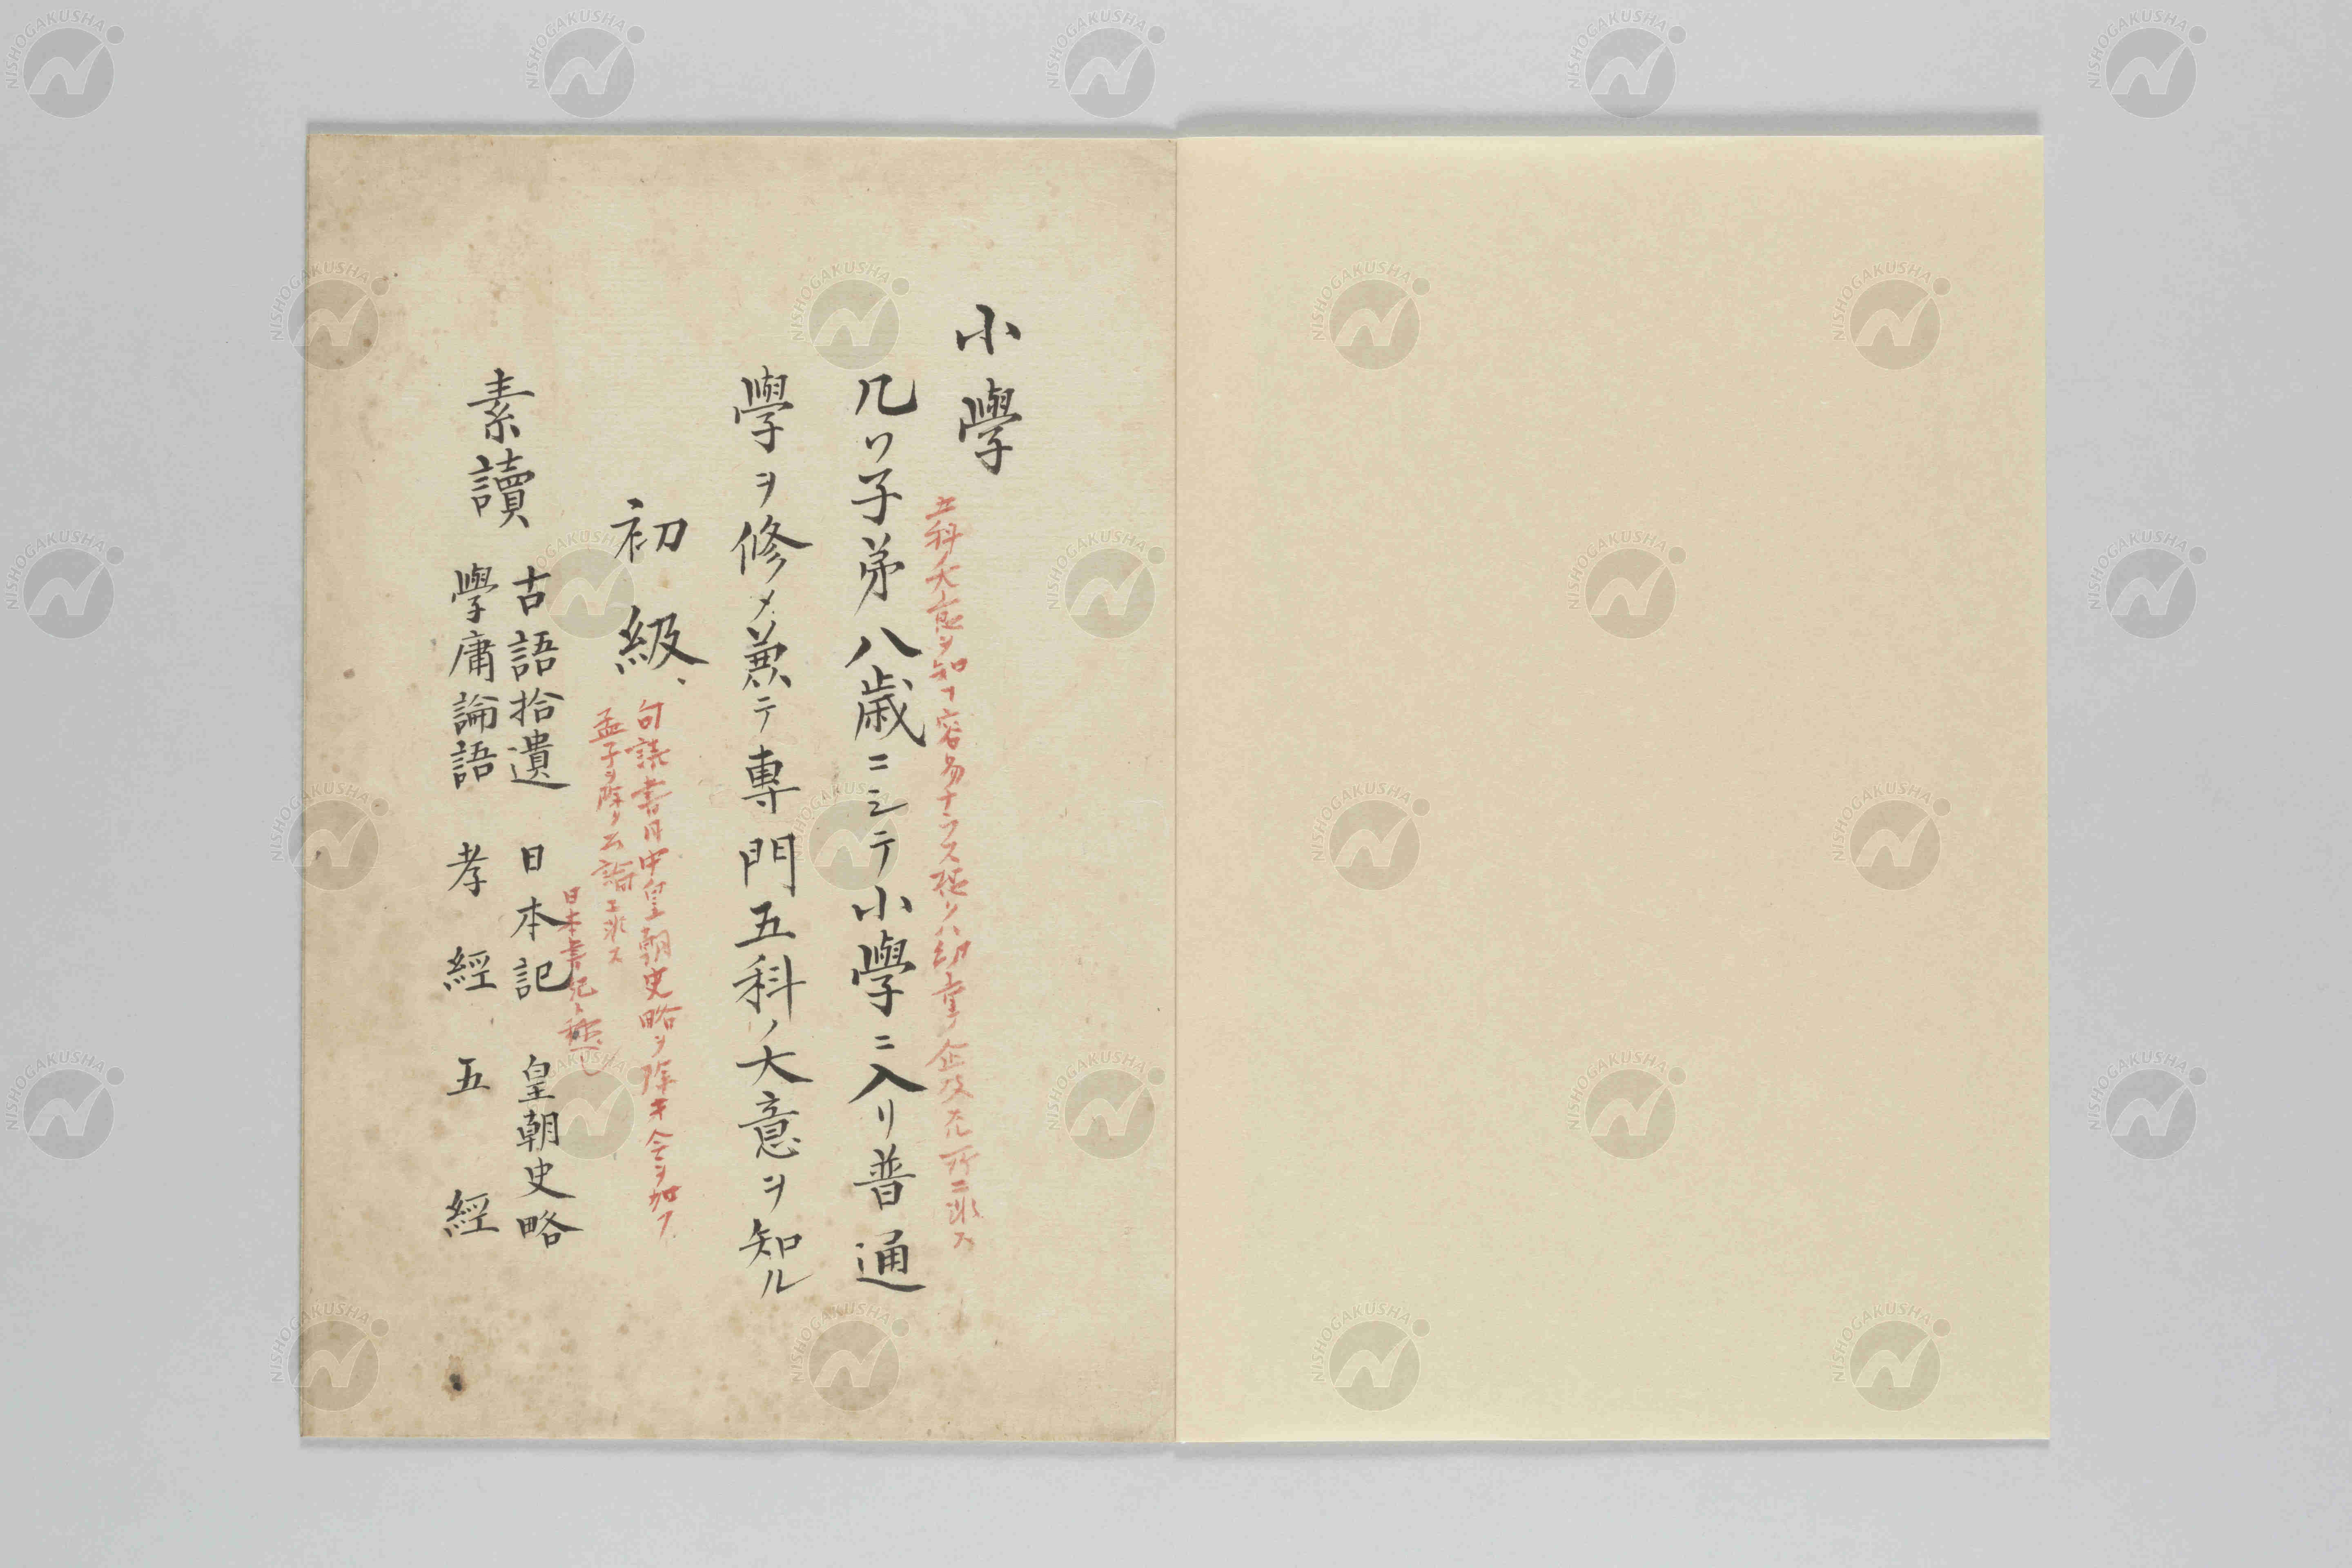 小學
五科ノ大意ヲ知ヿ容易ナラス恐クハ幼童ノ企及フ所ニ非ス
凡ソ子弟八歳ニシテ小學ニ入リ普通
學ヲ修メ兼テ専門五科ノ大意ヲ知ル
初級
句讀書目中皇朝史略ヲ除キ令ヲ加フ
孟子ヲ除ク公論ニ非ス
日本書紀ト稱
素讀
古語拾遺 日本記 皇朝史略
學庸論語 孝經 五經
NISHOGAKUSHA